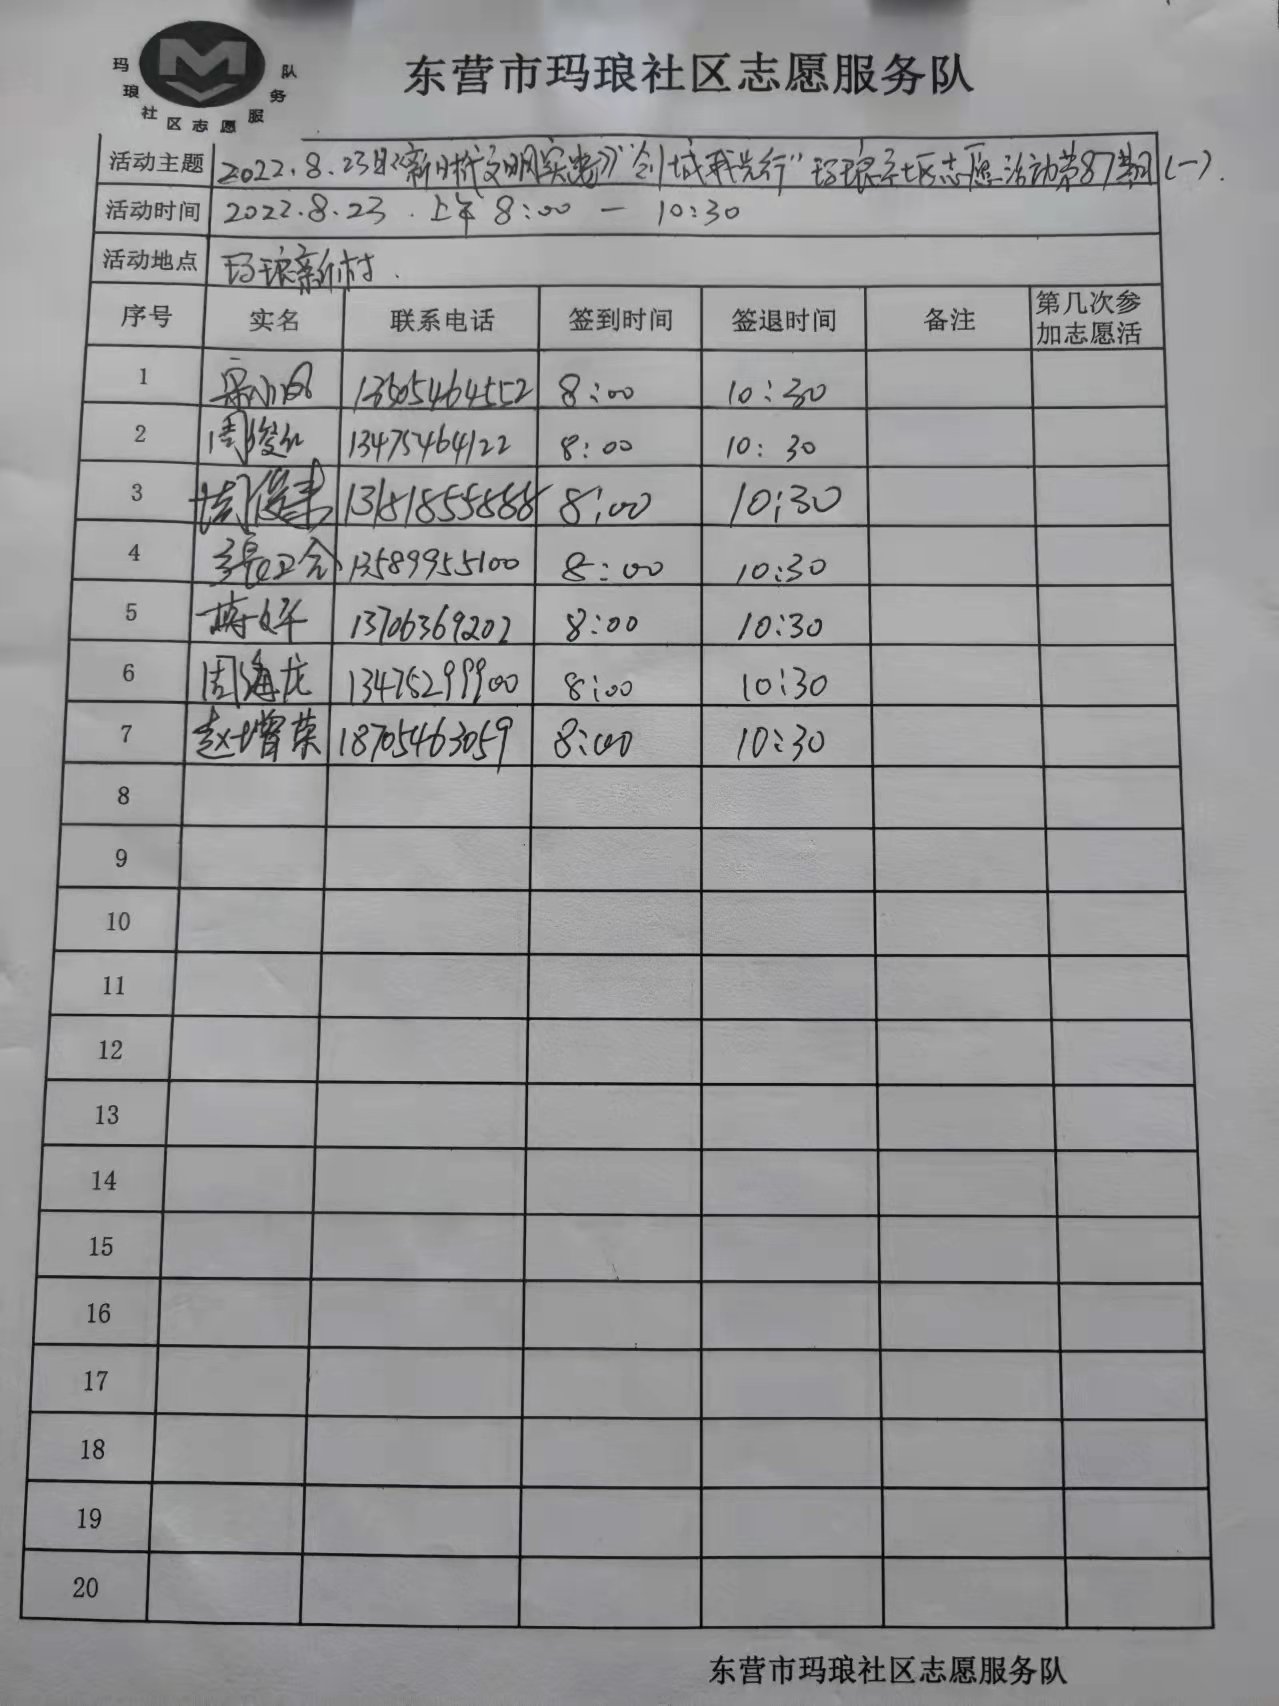 玛琅社区志愿服务队
东营市玛琅社区志愿服务队
活动主题 2022.8.23日《新时代文明实践》"创城我先行"玛琅社区志愿活动第87期(一).
活动时间 2022.8.23.上午8:00 — 10:30
活动地点 玛琅新村.
序号 实名 联系电话 签到时间 签退时间 备注 第几次参
加志愿活
1 13505464552 8:00 10:30
2 周俊红 13475464122 8:00 10:30
3 13181855888 8:00 10:30
4 张卫会 13589955100 8:00 10:30
5 13706369202 8:00 10:30
6 周海龙 13475299900 8:00 10:30
7 赵增荣 18705463059 8:00 10:30
8
9
10
11
12
13
14
15
16
17
18
19
20
东营市玛琅社区志愿服务队